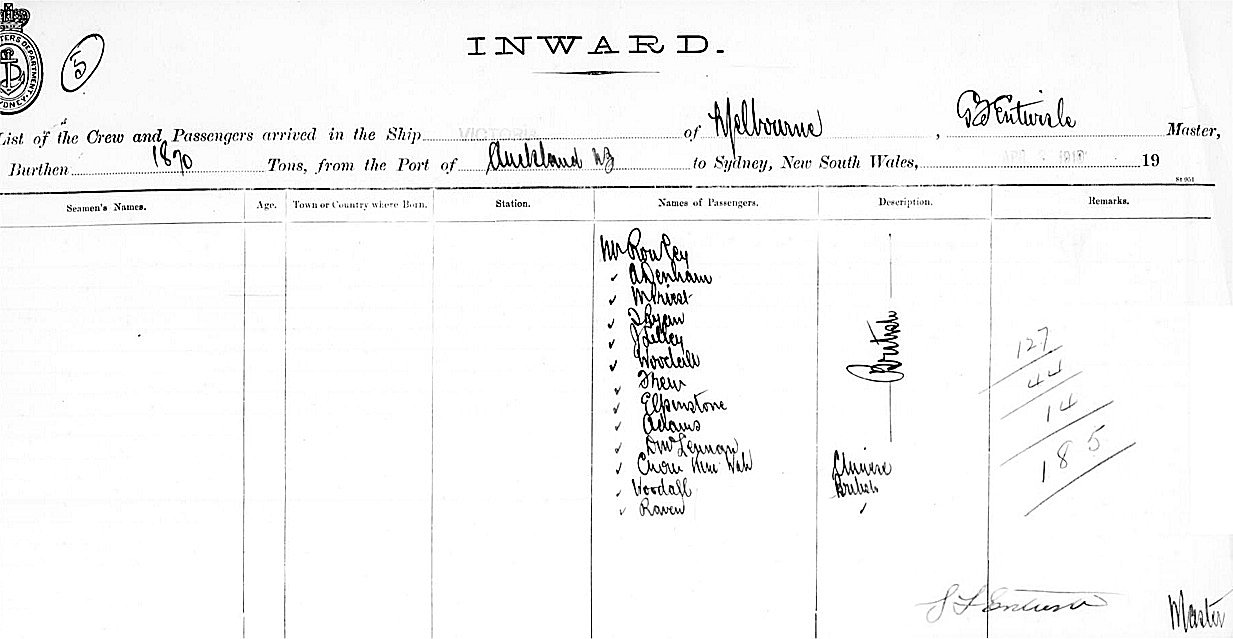 INWARD.
5
List of the Crew and Passengers arrived in the Ship of Melbourne, Entwisle Master,
Burthen 1870 Tons, from the Port of Auckland NZ to Sydney, New South Wales, 19
St 951
Seamen's Names. Age. Town or Country where Born. Station. Names of Passengers. Description. Remarks.
Mr Rowley
✓ A Denham
✓ M Priest
✓ Ryan
✓ J Lilley British
✓ Woodall
✓ Thew
✓ Elpinstone
✓ Adams
✓ D McLennan
✓ Wah Chinese
✓ Woodall British
✓ Raven
127
44
14
185
Master